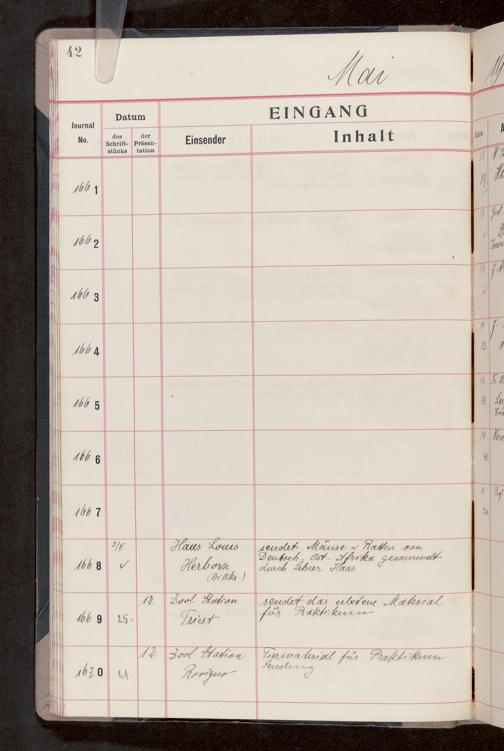 42
Mai
EINGANG
Journal
No.
Datum
des
Schrift-
stücks
der
Präsen-
tation
Einsender
Inhalt
1661
1662
1663
1664
1665
1666
1667
1668
Hans Loues
Herborn
(Dillkr)
sendet Mäuse u Ratten von
Deutsch-Ost-Afrika gesammelt
durch Lehrer Haas
1669
25.
12.
Zool Station
Triest
sendet das erbetene Material
für Praktikum
1670
12
Zool Station
Rovigno
Tiermaterial für Praktikum
Sendung.